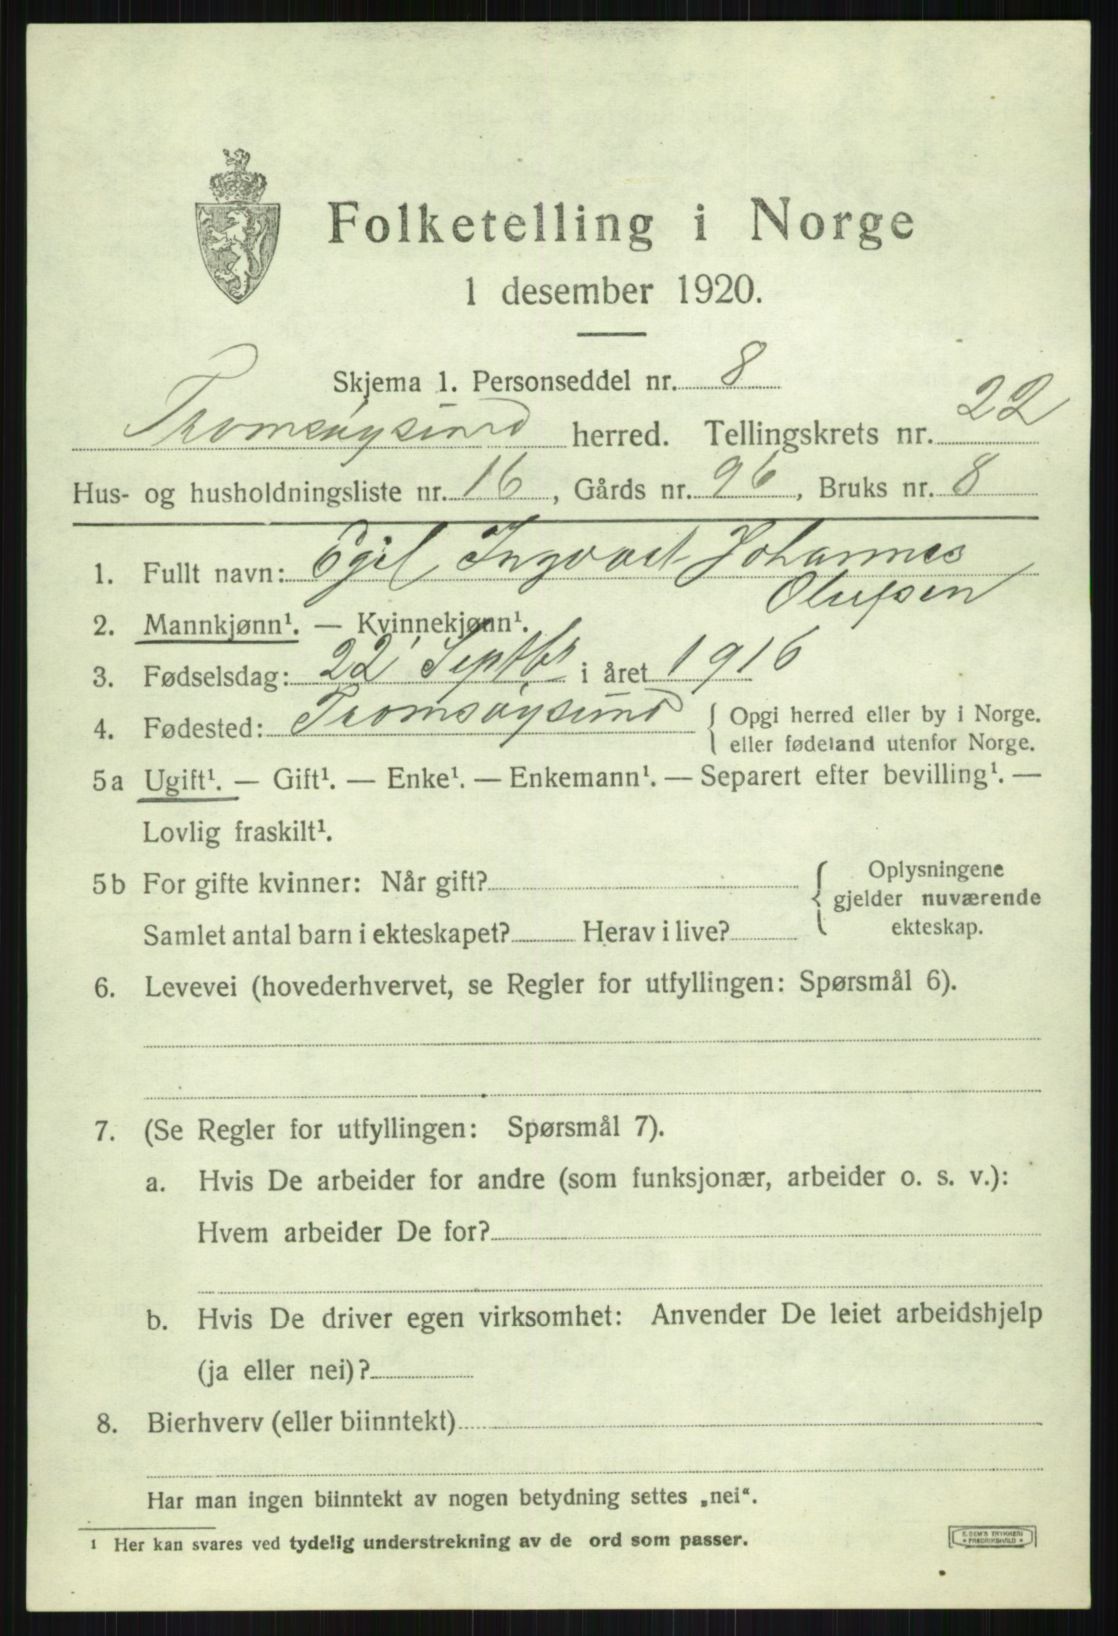 Folketelling i Norge
1 desember 1920.
Skjema 1. Personseddel nr. 8
Tromsøysund herred. Tellingskrets nr. 22
Hus- og husholdningsliste nr. 16, Gårds nr. 96, Bruks nr. 8
1. Fullt navn: Egil Ingvart Johannes
Olufsen
2. Mannkjønn¹. — Kvinnekjønn¹.
3. Fødselsdag: 22 Septbr i året 1916
4. Fødested: Tromsøysund { Opgi herred eller by i Norge.
eller fødeland utenfor Norge.
5a Ugift¹. — Gift¹. — Enke¹. — Enkemann¹. — Separert efter bevilling¹. —
Lovlig fraskilt¹.
5b For gifte kvinner: Når gift? { Oplysningene
gjelder nuværende
Samlet antal barn i ekteskapet? Herav i live? ekteskap.
6. Levevei (hovederhvervet, se Regler for utfyllingen: Spørsmål 6).
7. (Se Regler for utfyllingen: Spørsmål 7).
a. Hvis De arbeider for andre (som funksjonær, arbeider o. s. v.):
Hvem arbeider De for?
b. Hvis De driver egen virksomhet: Anvender De leiet arbeidshjelp
(ja eller nei)?
8. Bierhverv (eller biinntekt)
Har man ingen biinntekt av nogen betydning settes „nei“.
¹ Her kan svares ved tydelig understrekning av de ord som passer.